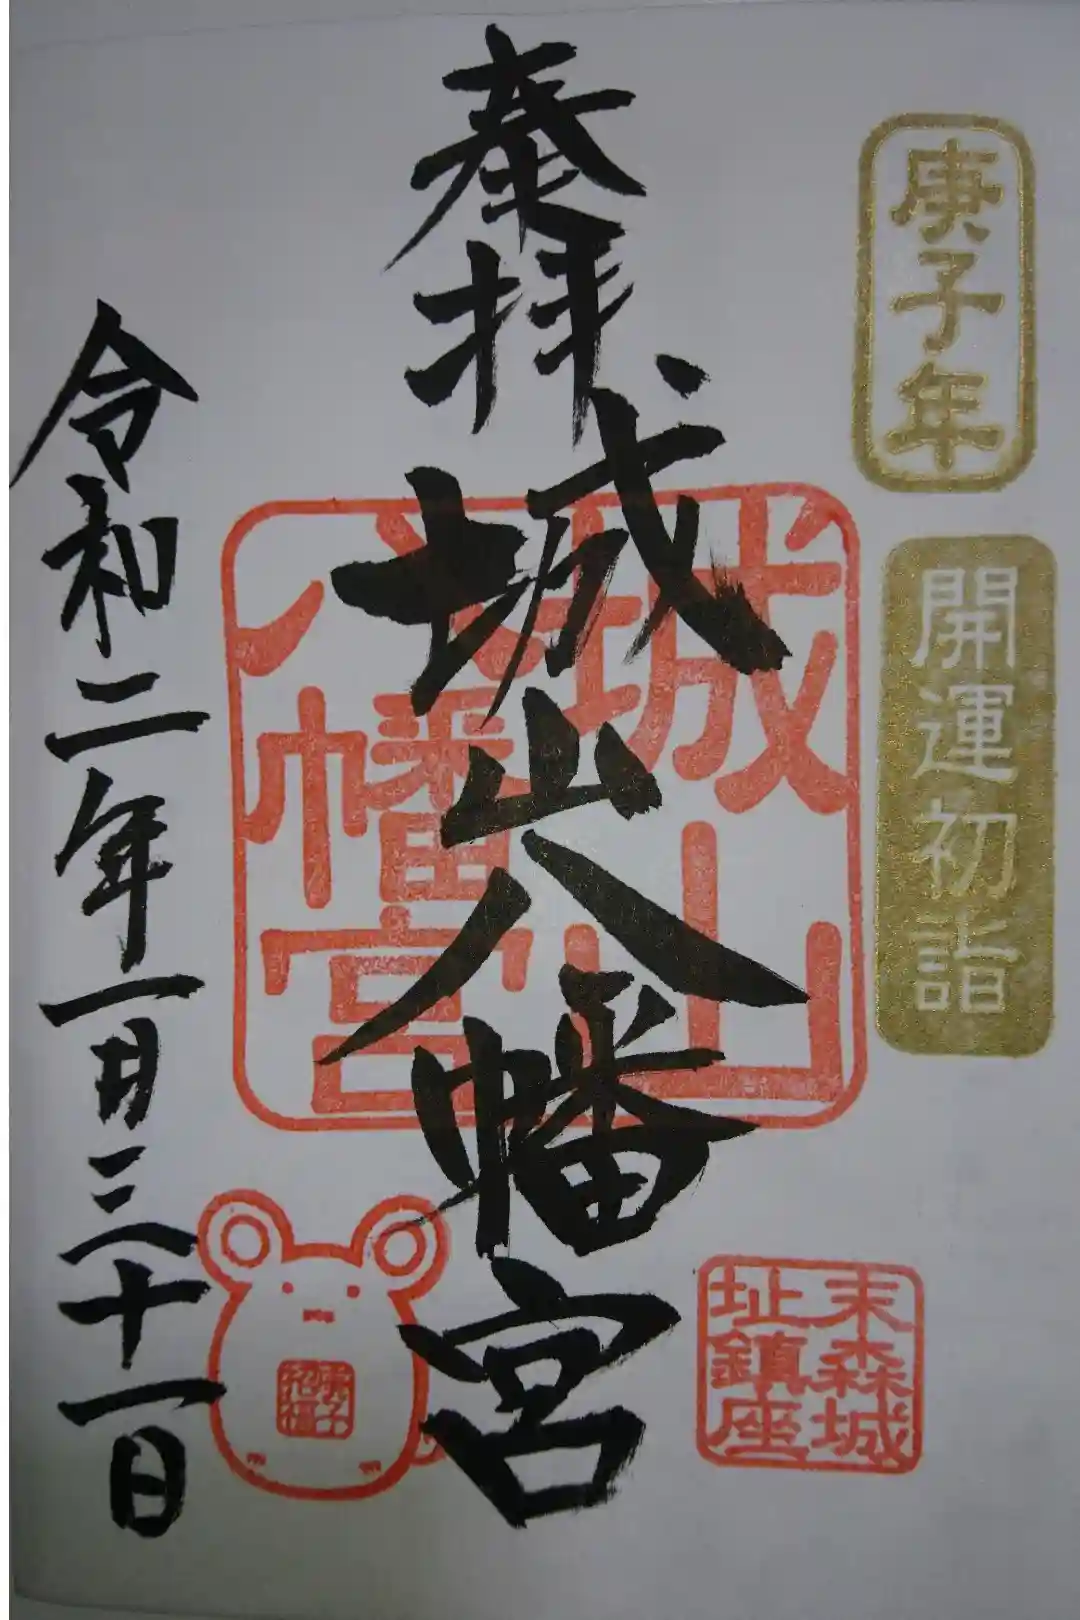 庚子年
開運初詣
奉拝
城山八幡宮
城山
八幡宮
末森城
址鎮座
令和二年一月三十一日